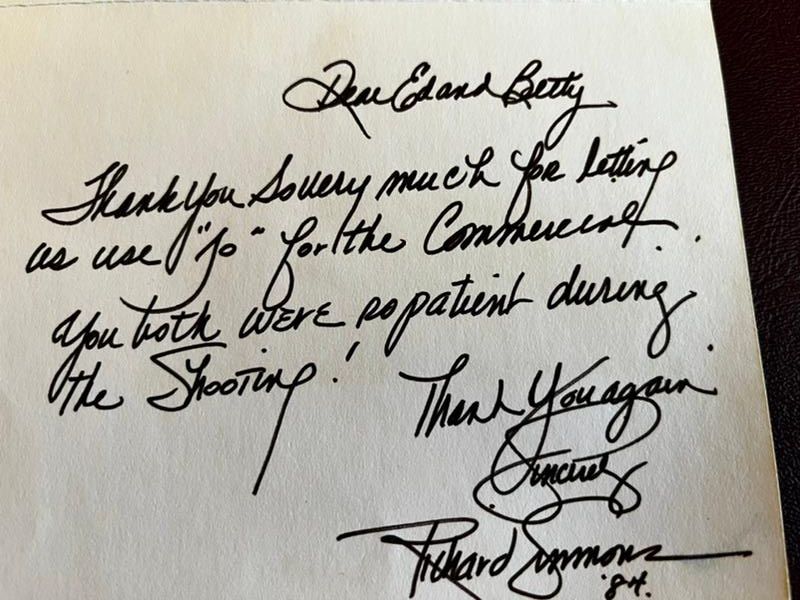 Dear Ed and Betty
Thank You So very much for letting
us use "Jo" for the Commercial.
You both were so patient during
the Shooting!
Thank You again
Sincerely
Richard Simmons
'84.